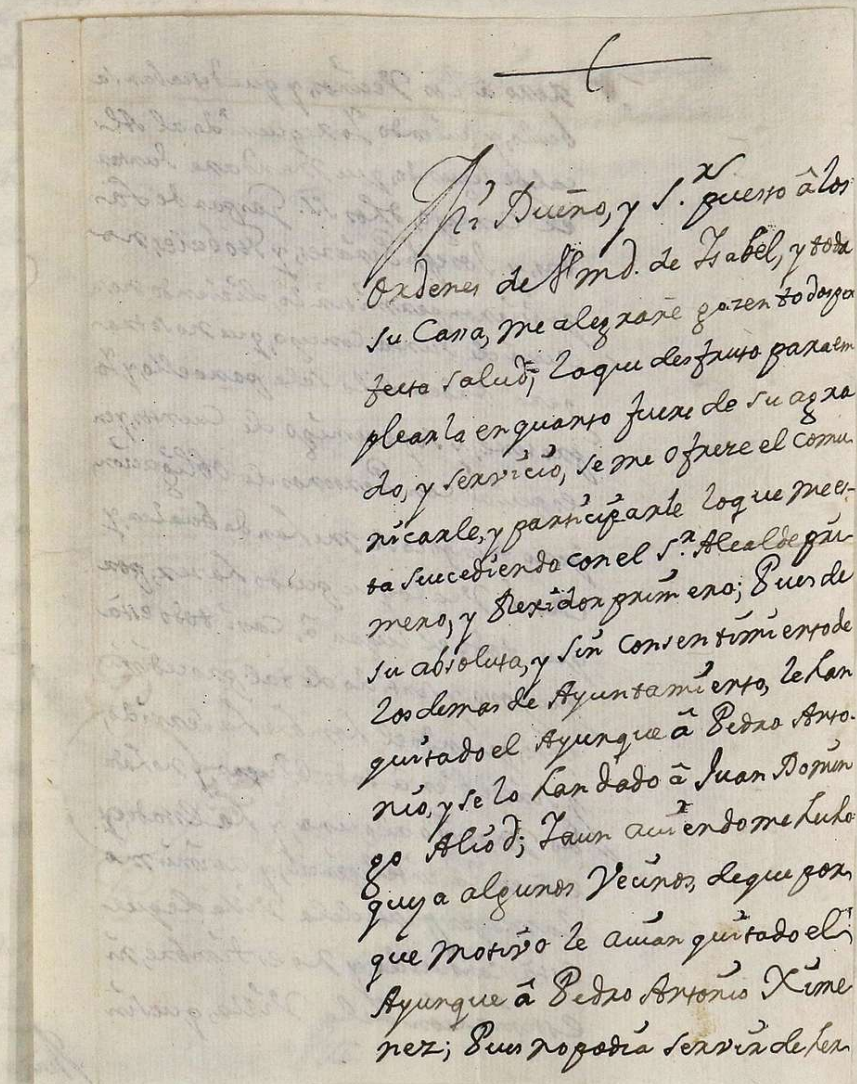 Mi Dueño, y S.r puesto â los
ordenes de Vmd. de Isabel, y toda
su Casa, me alegrare gozen todos per
fecta salud; la que desfruto para em
plearla en quanto fuere de su agra
do, y servicio, se me ofreze el comu
nicarle, y participarle lo que me es-
ta sucediendo con el S.r Alcalde pri-
mero, y Rexidor primero; Pues de
su absoluta, y sin consentimiento de
los demas de Ayuntamiento, le han
quitado el Ayunque â Pedro Anto-
nio, y se lo han dado â Juan Domin
go Aliod; Y aun aviendome hecho
quexa algunos Vecinos, de que por
que motivo le avian quitado el
Ayunque â Pedro Antonio Xime
nez; Pues no podia servir de her